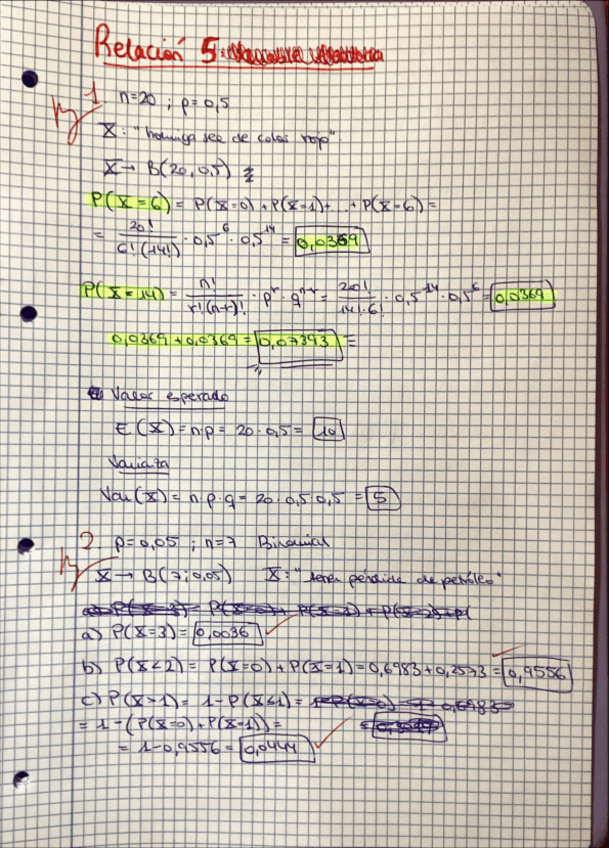 Relación 5
1 n=20 ; p=0,5
X: "hormiga sea de color rojo"
X → B(20, 0,5)
P(X=6) = P(X=0) + P(X=1) + ... + P(X=6) =
= 20! / 6! (14!) · 0,5^6 · 0,5^14 = 0,0369
P(X=14) = n! / r!(n-r)! · p^r · q^n-r = 20! / 14!·6! · 0,5^14 · 0,5^6 = 0,0369
0,0369 + 0,0369 = 0,07393 =
Valor esperado
E(X) = n·p = 20 · 0,5 = 10
Varianza
Var(X) = n·p·q = 20 · 0,5 · 0,5 = 5
2 p=0,05 ; n=7 Binomial
X → B(7; 0,05) X: "tener pérdida de petróleo"
a) P(X=3) = P(X=0) + P(X=1) + P(X=2) + P(
a) P(X=3) = 0,0036
b) P(X<2) = P(X=0) + P(X=1) = 0,6983 + 0,2573 = 0,9556
c) P(X>1) = 1 - P(X≤1) = 1 - P(X=0) = 0,6983
= 1 - (P(X=0) + P(X=1)) =
= 1 - 0,9556 = 0,0444